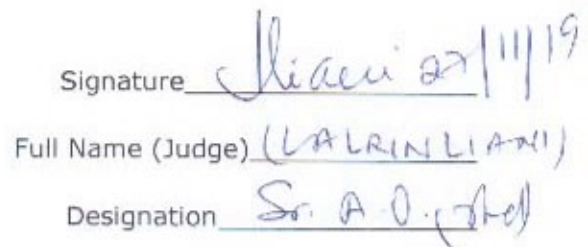 Signature 27/11/19
Full Name (Judge) (LALRINLIANI)
Designation Sr. A.O.